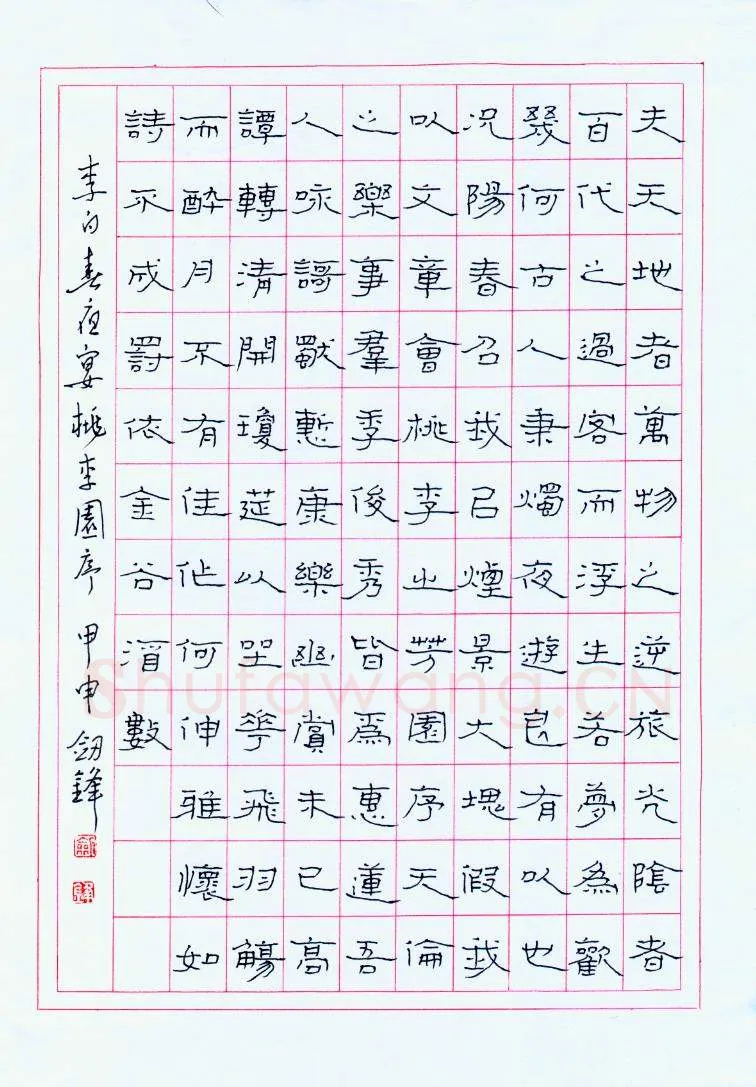 夫天地者萬物之逆旅光陰者
百代之過客而浮生若夢為歡
幾何古人秉燭夜遊良有以也
況陽春召我以煙景大塊假我
以文章會桃李之芳園序天倫
之樂事羣季俊秀皆為惠連吾
人咏謌獨慙康樂幽賞未已高
譚轉清開瓊莚以坐華飛羽觴
而醉月不有佳作何伸雅懷如
詩不成罰依金谷酒數
李白春夜宴桃李園序 甲申 釰鋒
Shufawang.CN